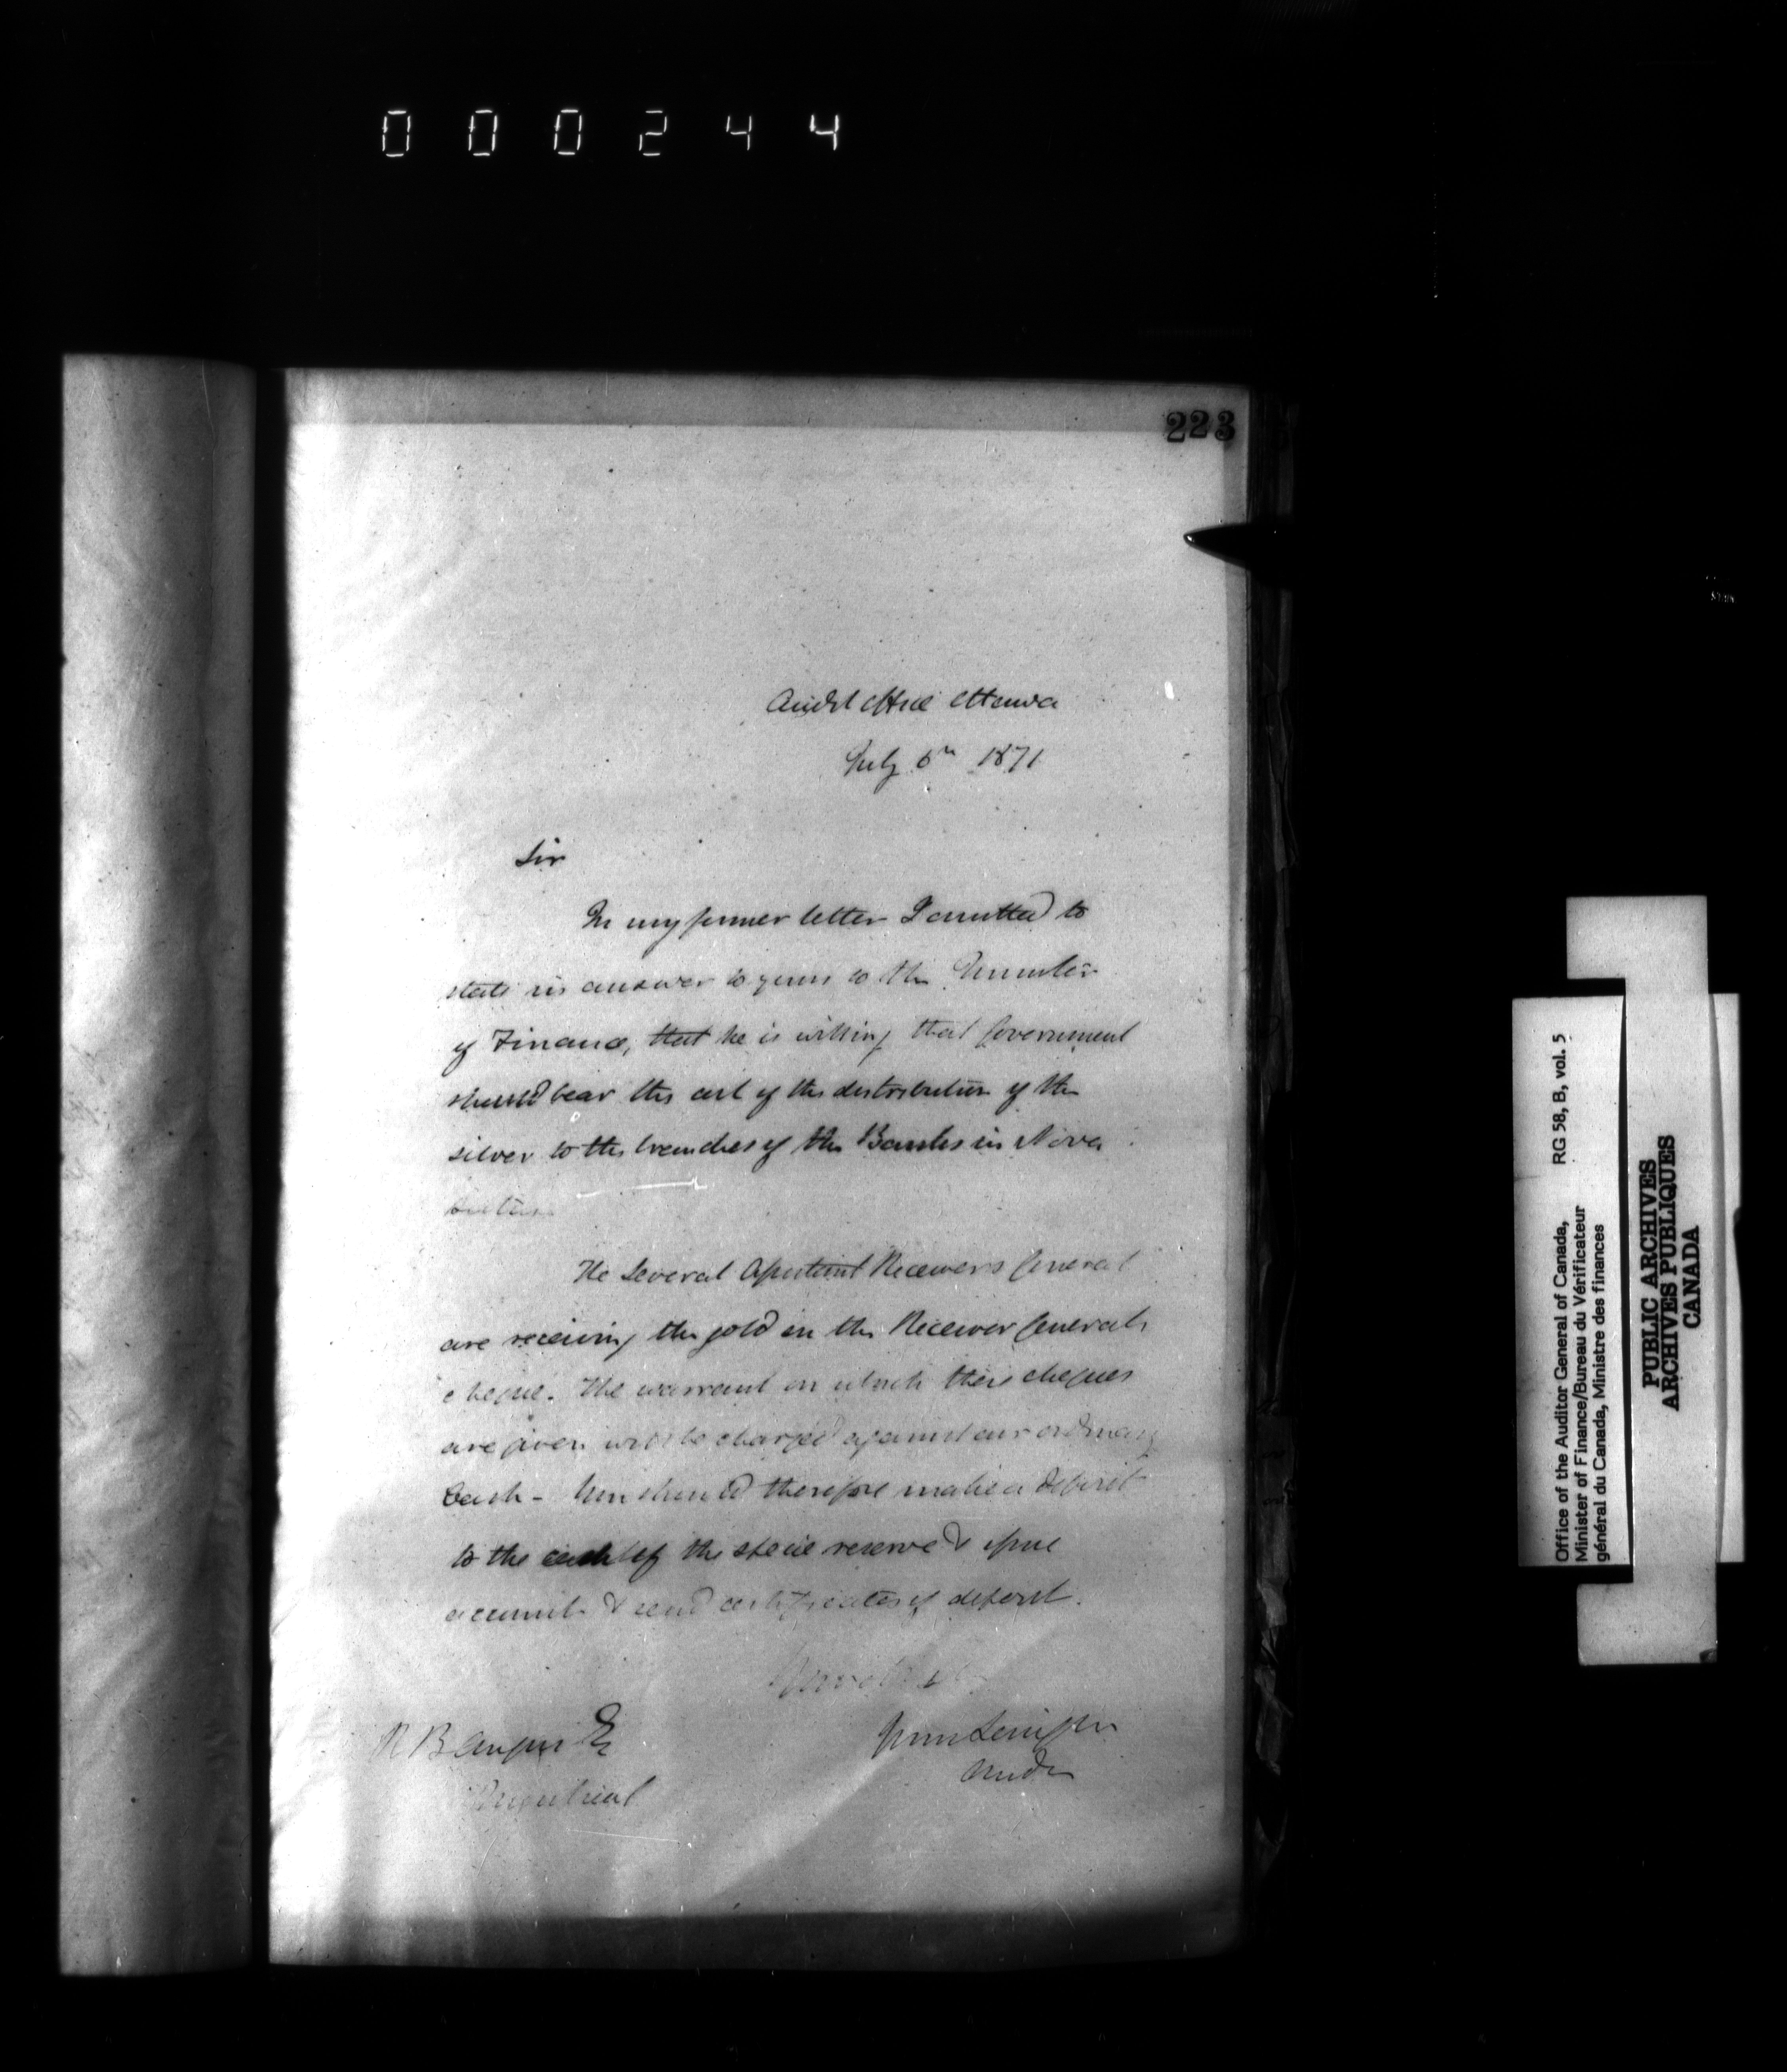 000244
223
Audit Office Ottawa
July 6th 1871
Sir
In my former letter I omitted to
state in answer to yours to the Minister
of Finance, that he is willing that Government
should bear the cost of the distribution of the
silver to the branches of the Banks in Nova
Scotia.
The Several Assistant Receivers General
are receiving the gold on the Receiver Generals
cheque. The warrant on which these cheques
are given will be charged against our ordinary
Cash - You should therefore make a deposit
to the credit of the specie reserve & issue
accounts & send certificates of deposit.
R B Angus Esq
Montreal
John Langton
Auditor
Office of the Auditor General of Canada, RG 58, B, vol. 5
Minister of Finance/Bureau du Vérificateur
général du Canada, Ministre des finances
PUBLIC ARCHIVES
ARCHIVES PUBLIQUES
CANADA